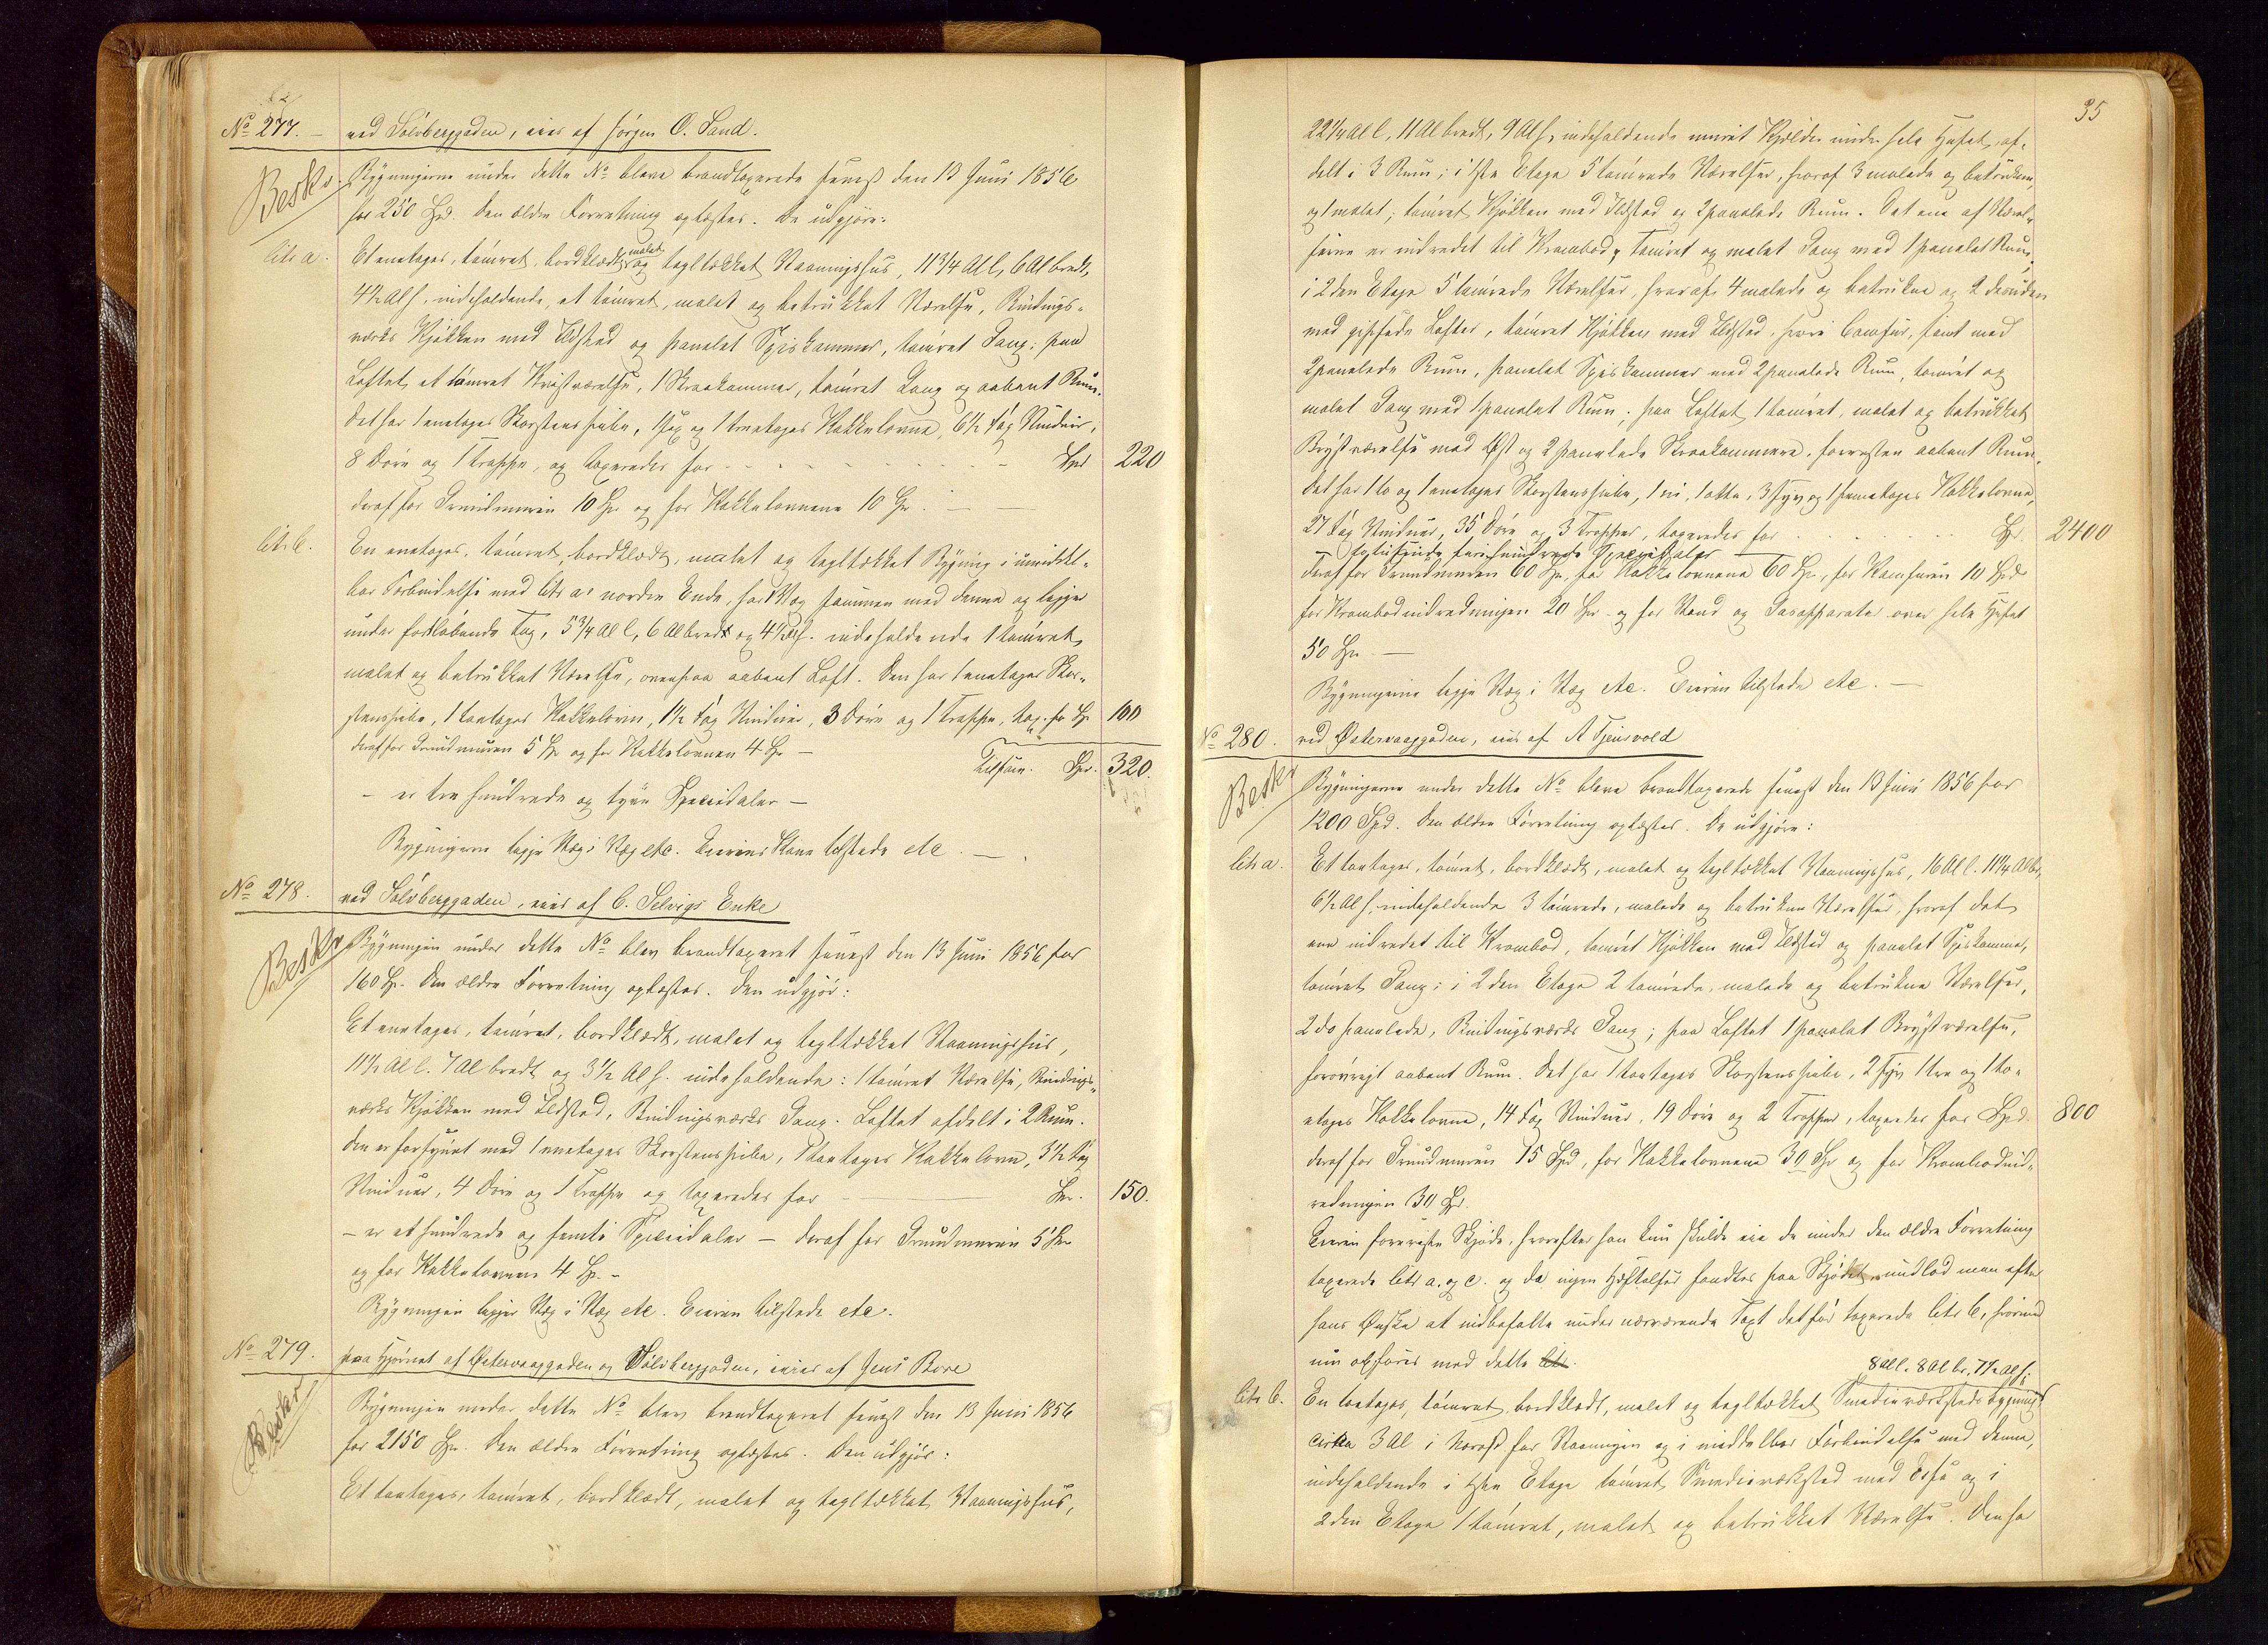 No 277. – ved Sølvberggaden, eies af Jørgen O. Sand.
Beskr. Bygningerne under dette No bleve brandtaxerede senest den 13 Juni 1856
for 250 Spd. Den ældre Forretning oplæstes. De udgjøre:
litr a. Et enetages, tømret, bordklædt, malet og tegltækket Vaaningshus, 11 3/4 Al l, 6 Al bredt,
4 1/2 Al h, indeholdende, et tømret, malet og betrukket Værelse, Bindings-
værks Kjøkken med Ildsted og panelet Spiskammer, tømret Gang; paa
Loftet et tømret Kvistværelse, 1 Skraakammer, tømret Gang og aabent Rum.
Det har 1 enetages Skorstenspibe, 1 sex og 1 treetages Kakkelovne, 6 1/2 Fag Vinduer,
8 Døre og 1 Trappe, og taxeredes for - - - - - Spd 220
deraf for Grundmuren 10 Spd og for Kakkelovnene 10 Spd. —
litr b. En enetages, tømret, bordklædt, malet og tegltækket Bygning i umiddel-
bar Forbindelse med litr a's nordre Ende, har Væg sammen med denne og ligger
under fortløbende Tag, 5 3/4 Al l, 6 Al bredt og 4 1/2 Al h. indeholdende 1 tømret,
malet og betrukket Værelse, ovenpaa aabent Loft. Den har 1 enetages Skor-
stenspibe, 1 toetages Kakkelovn, 1 1/2 Fag Vinduer, 3 Døre og 1 Trappe, tax. for Spd 100
deraf for Grundmuren 5 Spd og for Kakkelovnen 4 Spd —
Tilsam. Spd. 320.
– er tre hundrede og tyve Speciedaler –
Bygningerne ligge Væg i Væg etc. Eierens Kone tilstede etc. —
No 278. ved Sølvberggaden, eies af C. Selvigs Enke
Beskr Bygningen under dette No blev brandtaxeret senest den 13 Juni 1856 for
160 Spd. Den ældre Forretning oplæstes. Den udgjør:
Et enetages, tømret, bordklædt, malet og tegltækket Vaaningshus,
11 1/2 Al l. 7 Al bredt og 3 1/2 Al h. indeholdende: 1 tømret Værelse, Bindings-
værks Kjøkken med Ildsted, Bindingsværks Gang. Loftet afdelt i 2 Rum.
Den er forsynet med 1 enetages Skorstenspibe, 1 toetages Kakkelovn, 3 1/2 Fag
Vinduer, 4 Døre og 1 Trappe og taxeredes for — Spd. 150.
– er et hundrede og femti Speciedaler – deraf for Grundmuren 5 Spd
og for Kakkelovnen 4 Spd. –
Bygningen ligger Væg i Væg etc. Eieren tilstede etc.
No 279. paa Hjørnet af Østervaaggaden og Sølvberggaden, eies af Jens Bore
Beskr Bygningen under dette No blev brandtaxeret senest den 13 Juni 1856
for 2150 Spd. Den ældre Forretning oplæstes. Den udgjør:
Et toetages, tømret, bordklædt, malet og tegltækket Vaaningshus,
35
22 1/4 Al l, 11 Al bredt, 9 Al h, indeholdende muret Kjælder under hele Huset, af-
delt i 3 Rum; i 1ste Etage 5 tømrede Værelser, hvoraf 3 malede og betrukne,
og 1 malet; tømret Kjøkken med Ildsted og 2 panelede Rum. Det ene af Værel-
serne er indredet til Krambod, tømret og malet Gang med 1 panelet Rum,
i 2den Etage 5 tømrede Værelser, hvoraf 4 malede og betrukne og 2 desuden
med gipsede Lofter, tømret Kjøkken med Ildsted, hvori Comfur, samt med
2 panelede Rum, panelet Spiskammer med 2 panelede Rum, tømret og
malet Gang med 1 panelet Rum; paa Loftet 1 tømret, malet og betrukket
Brystværelse med Øst og 2 panelede Skraakammere, forresten aabent Rum.
Det har 1 to og 1 enetages Skorstenspibe, 1 ni, 1 otte, 3 syv og 1 femetages Kakkelovne,
27 Fag Vinduer, 35 Døre og 3 Trapper, taxeredes for . . . . Spd. 2400
– totusinde firehundrede Speciedaler –
deraf for Grundmuren 60 Spd, for Kakkelovnene 60 Spd, for Komfuren 10 Spd
for Krambodindredningen 20 Spd og for Vand og Gasapparater over hele Huset
50 Spd —
Bygningerne ligge Væg i Væg etc. Eieren tilstede etc. —
No 280. ved Østervaaggaden, eies af A Tjensvold
Beskr Bygningerne under dette No bleve brandtaxerede senest den 13 Juni 1856 for
1200 Spd. Den ældre Forretning oplæstes. De udgjøre:
litr a. Et toetages, tømret, bordklædt, malet og tegltækket Vaaningshus, 16 Al l. 11 1/4 Al br,
6 1/2 Al h, indeholdende 3 tømrede, malede og betrukne Værelser, hvoraf det
ene indredet til Krambod, tømret Kjøkken med Ildsted og panelet Spiskammer,
tømret Gang; i 2den Etage 2 tømrede, malede og betrukne Værelser,
2 do panelede, Bindingsværks Gang; paa Loftet 1 panelet Brystværelse,
forøvrigt aabent Rum. Det har 1 toetages Skorstenspibe, 2 syv 1 tre og 1 to-
etages Kakkelovne, 14 Fag Vinduer, 19 Døre og 2 Trapper, taxeredes for Spd. 800
deraf for Grundmuren 15 Spd, for Kakkelovnene 30 Spd og for Krambodind-
redningen 30 Spd.
Eieren foreviste Skjøde, hvorefter han kun skulde eie de under den ældre Forretning
taxerede litr a. og c. og da ingen Hæftelser fandtes paa Skjødet undlod man efter
hans Ønske at indbefatte under nærværende Taxt det før taxerede litr b, hvormed
nu opføres med dette litr.
8 Al l. 8 Al br. 7 1/2 Al h;
litr b. En toetages, tømret, bordklædt, malet og tegltækket Smedieværksteds bygning
cirka 3 Al i Nordost for Vaaningen og i middelbar Forbindelse med denne,
indeholdende i 1ste Etage tømret Smedieværksted med Esse og i
2den Etage 1 tømret, malet og betrukket Værelse. Den har